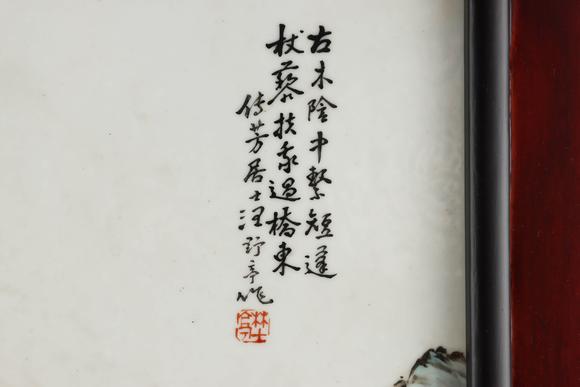 古木陰中繫短蓬
杖藜扶我過橋東
傳芳居士汪野亭作